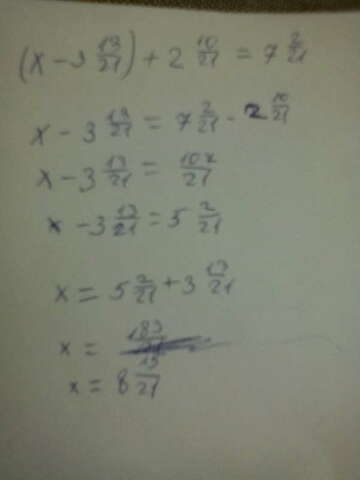 (x - 3 13/21) + 2 10/21 = 7 2/21
x - 3 13/21 = 7 2/21 - 2 10/21
x - 3 13/21 = 107/21
x - 3 13/21 = 5 2/21
x = 5 2/21 + 3 13/21
x =
x = 8 15/21